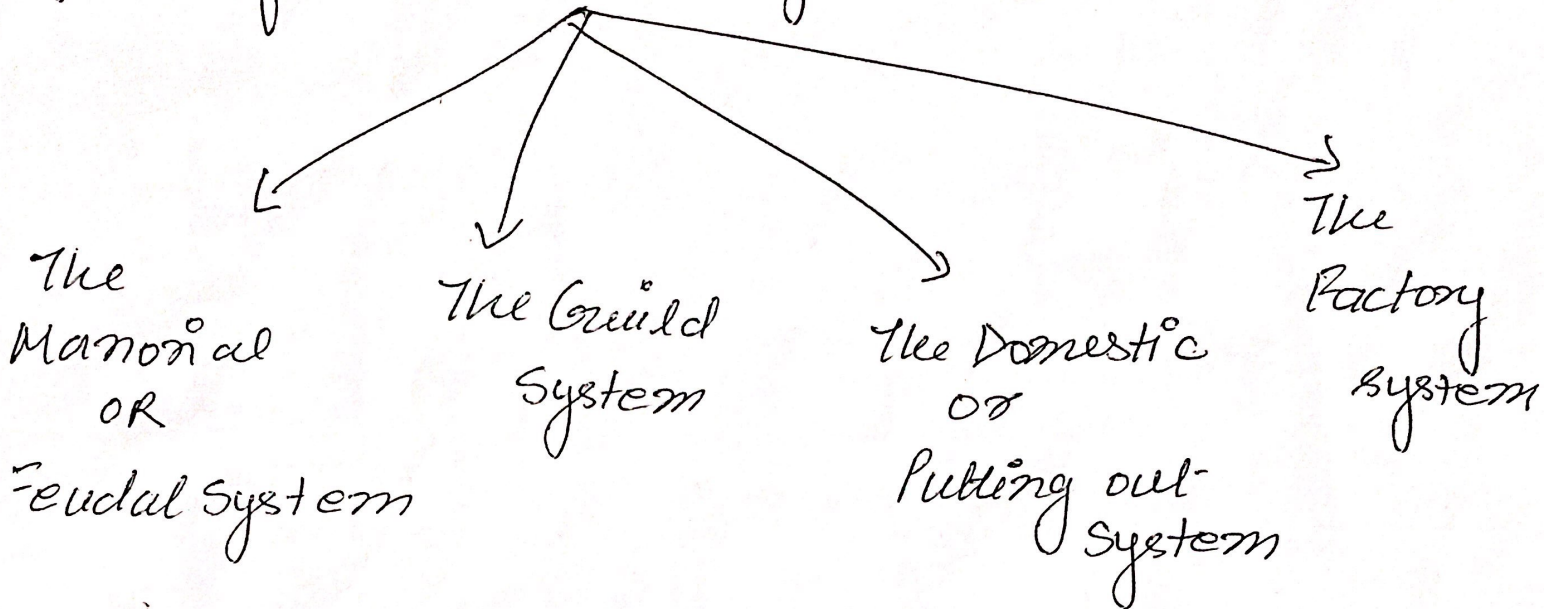 The
Manorial
OR
Feudal System
The Guild
System
The Domestic
or
Putting out
System
The
Factory
System